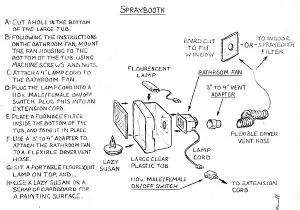 SPRAYBOOTH
A: CUT A HOLE IN THE BOTTOM
OF THE LARGE TUB.
B: FOLLOWING THE INSTRUCTIONS
ON THE BATHROOM FAN, MOUNT
THE FAN HOUSING TO THE
BOTTOM OF THE TUB USING
MACHINE SCREWS AND NUTS.
C: ATTACH A LAMP CORD TO THE
BATHROOM FAN.
D: PLUG THE LAMP CORD INTO A
110V. MALE/FEMALE ON/OFF
SWITCH. PLUG THIS INTO AN
EXTENSION CORD.
E: PLACE A FURNACE FILTER
INSIDE THE BOTTOM OF THE
TUB, AND TAPE IT IN PLACE.
F: USE A 3" TO 4" ADAPTER TO
ATTACH THE BATHROOM FAN
TO A FLEXIBLE DRYER VENT
HOSE.
G: SIT A PORTABLE FLOURESCENT
LAMP ON TOP, AND...
H: USE A LAZY SUSAN OR A
SCRAP OF CARDBOARD FOR
A PAINTING SURFACE.
BOARD CUT TO
FIT WINDOW
TO INDOOR
-OR- SPRAYBOOTH
FILTER
FLOURESCENT
LAMP
BATHROOM FAN
3" TO 4"
VENT
ADAPTER
FLEXIBLE DRYER
VENT HOSE.
LAZY
SUSAN
LARGE CLEAR
PLASTIC TUB
LAMP
CORD
110V. MALE/FEMALE
ON/OFF SWITCH
TO EXTENSION
CORD